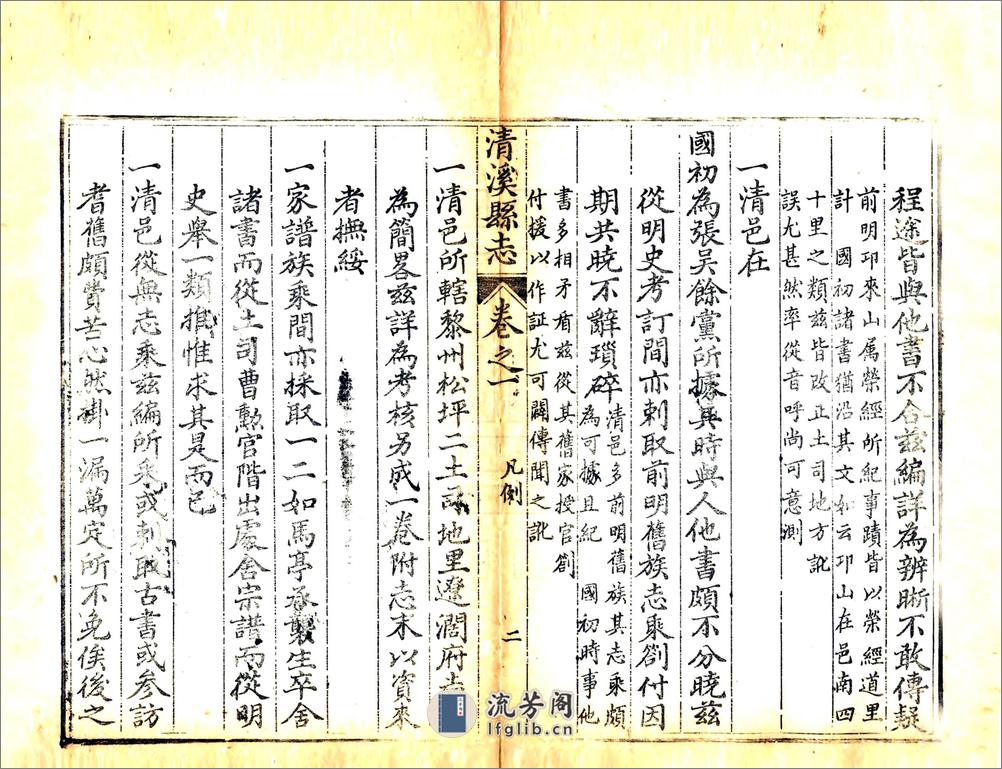 程途皆與他書不合茲編詳為辨晰不敢傳疑
前明邛來山属榮經所紀事蹟皆以榮經道里
計 國初諸書猶沿其文如云邛山在邑南四
十里之類茲皆改正土司地方訛
誤尤甚然率從音呼尚可意測
一清邑在
國初為張吳餘黨所據其時與人他書頗不分曉茲
從明史考訂間亦剌取前明舊族志乘劄付因
期共曉不辭瑣碎
清邑多前明舊族其志乘頗
為可據且紀 國初時事他
書多相矛盾茲從其舊家授官劄
付援以作証尤可闢傳聞之訛
清溪縣志 卷之一 凡例 二
一清邑所轄黎州松坪二土司地里遼濶府志
為簡畧茲詳為考核另成一卷附志末以資來
者撫綏
一家譜族乘間亦採取一二如馬亭承襲生卒舍
諸書而從土司曹勳官階出處舍宗譜而從明
史舉一類推惟求其是而已
一清邑從無志乘茲編所采或剌取古書或参訪
耆舊頗費苦心然掛一漏萬定所不免俟後之
流芳阁
lfglib.cn